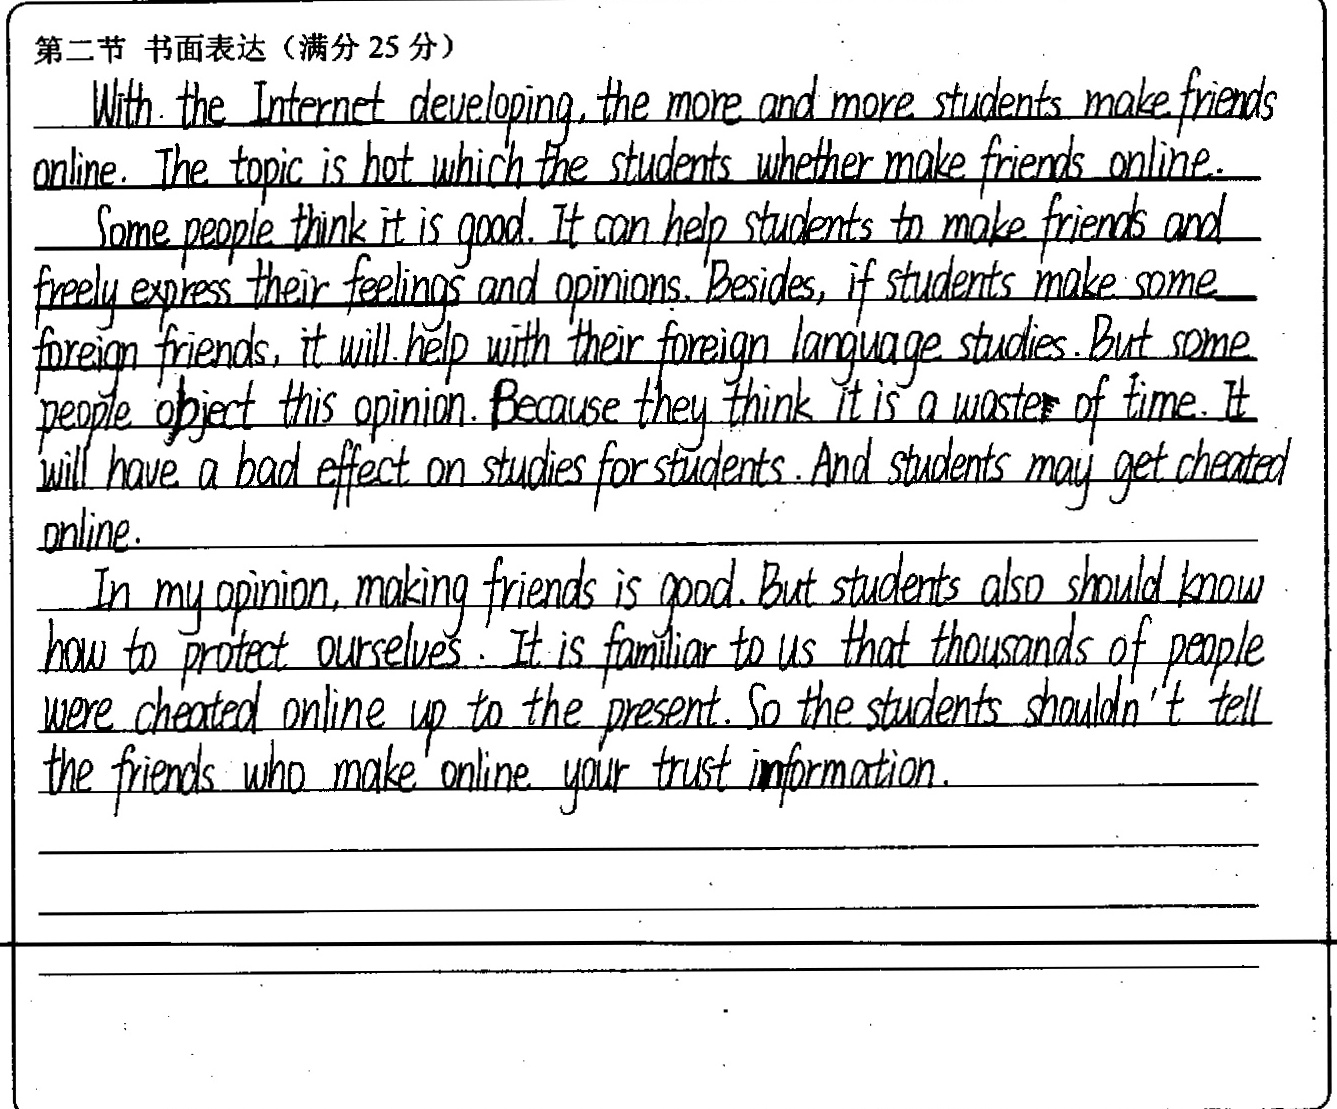 第二节 书面表达（满分 25 分）
With the Internet developing, the more and more students make friends
online. The topic is hot which the students whether make friends online.
Some people think it is good. It can help students to make friends and
freely express their feelings and opinions. Besides, if students make some
foreign friends, it will help with their foreign language studies. But some
people object this opinion. Because they think it is a waste of time. It
will have a bad effect on studies for students. And students may get cheated
online.
In my opinion, making friends is good. But students also should know
how to protect ourselves. It is familiar to us that thousands of people
were cheated online up to the present. So the students shouldn't tell
the friends who make online your trust information.